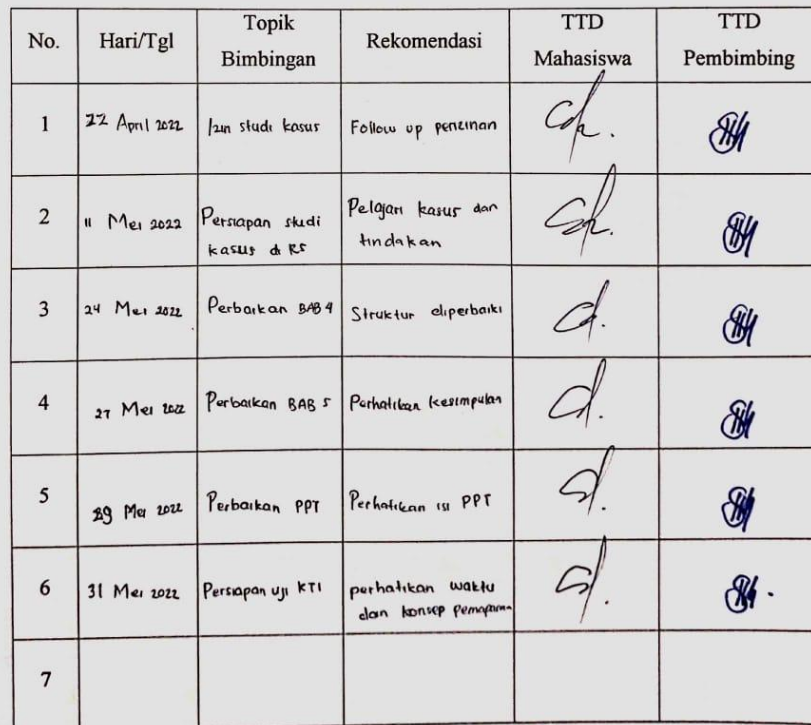 No. Hari/Tgl Topik Bimbingan Rekomendasi TTD Mahasiswa TTD Pembimbing
1 22 April 2022 Izin studi kasus Follow up perizinan
2 11 Mei 2022 Persiapan studi kasus di RS Pelajari kasus dan tindakan
3 24 Mei 2022 Perbaikan BAB 4 Struktur diperbaiki
4 27 Mei 2022 Perbaikan BAB 5 Perhatikan kesimpulan
5 29 Mei 2022 Perbaikan PPT Perhatikan isi PPT
6 31 Mei 2022 Persiapan uji KTI perhatikan waktu dan konsep pemaparan
7